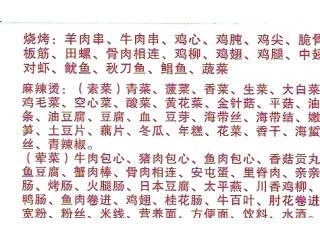 烧烤：羊肉串、牛肉串、鸡心、鸡肫、鸡尖、脆骨
板筋、田螺、骨肉相连、鸡柳、鸡翅、鸡腿、中翅
对虾、鱿鱼、秋刀鱼、鲳鱼、蔬菜
麻辣烫：（素菜）青菜、菠菜、香菜、生菜、大白菜
鸡毛菜、空心菜、酸菜、黄花菜、金针菇、平菇、油
条、油豆腐、豆腐、血、豆芽、海带丝、海带结、嫩
笋、土豆片、藕片、冬瓜、年糕、花菜、香干、海蜇
丝、青辣椒。
（荤菜）牛肉包心、猪肉包心、鱼肉包心、香菇贡丸
鱼豆腐、蟹肉棒、骨肉相连、安屯蛋、里脊肉、亲亲
肠、烤肠、火腿肠、日本豆腐、太平燕、川香鸡柳、
鸭肠、鱼肉卷进、鸡翅、桂花肠、牛百叶、肘花卷进
宽粉、粉丝、米线、营养面、方便面、饮料、水酒。